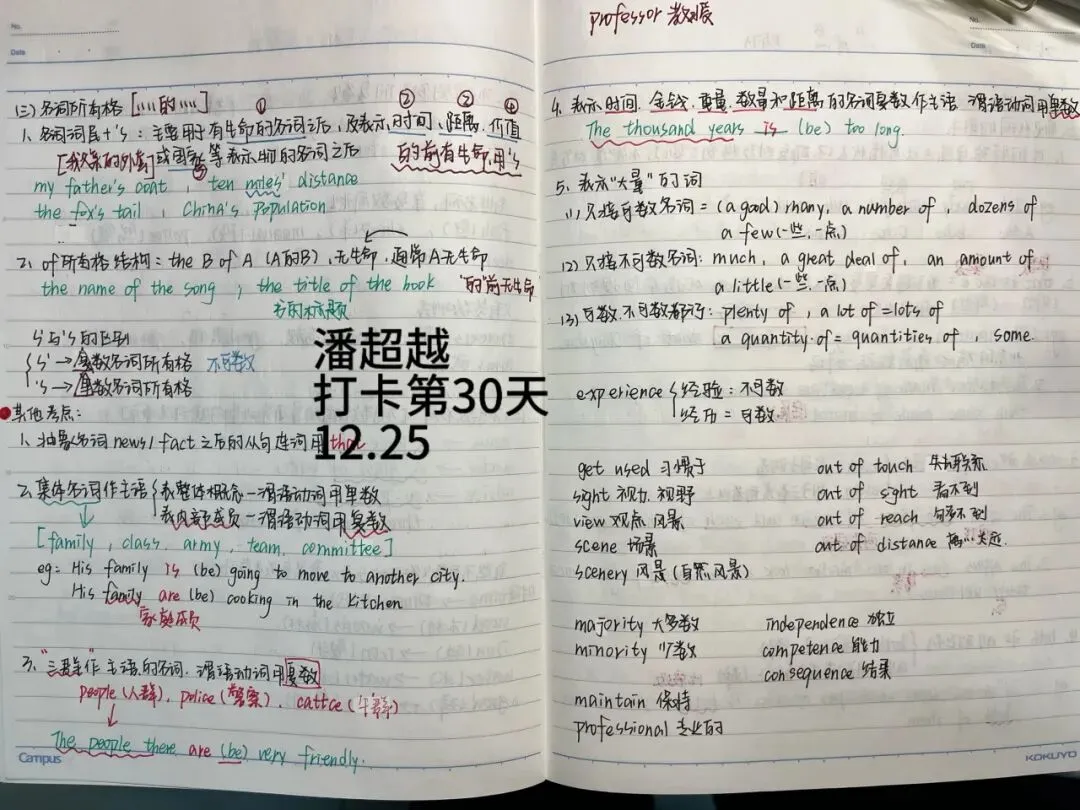 professor 教授
No.
Date
(三)名词所有格 [“……的……”]
① ② ③ ④
1. 名词词尾+'s：主要用于有生命的名词之后，及表示时间、距离、价值
[我父亲的外套] 或国家等表示物的名词之后 的前有生命,用's
my father's coat , ten miles' distance
the fox's tail , China's Population
2. of所有格结构：the B of A (A的B),无生命,通常A无生命
the name of the song ; the title of the book "的"前无生命
书的标题
s'与's的区别
s' → 复数名词所有格 不可数
's → 单数名词所有格
其他考点：
1. 抽象名词 news / fact 之后的从句连词用 that
2. 集体名词作主语 表整体概念—谓语动词用单数
表内部成员—谓语动词用复数
[family , class , army , team , committee]
eg: His family is (be) going to move to another city.
His family are (be) cooking in the kitchen
家庭成员
3. "三群作"主语的名词.谓语动词用复数
people (人群), police (警察), cattce (牛群)
The people there are (be) very friendly.
Campus
No.
Date
4. 表示时间、金钱、重量、数量和距离的名词复数作主语 谓语动词用单数
The thousand years is (be) too long.
5. 表示“大量”的词
(1) 只接可数名词 = (a good) many, a number of , dozens of
a few (一些,一点)
(2) 只接不可数名词: much, a great deal of, an amount of
a little (一些,一点)
(3) 可数,不可数都可: plenty of , a lot of = lots of
a quantity of = quantities of , some.
experience 经验：不可数
经历 = 可数
get used 习惯于 out of touch 失去联系
sight 视力.视野 out of sight 看不到
view 观点 风景 out of reach 够不到
scene 场景 out of distance
scenery 风景 (自然风景)
majority 大多数 independence 独立
minority 少数 competence 能力
consequence 结果
maintain 保持
professional 专业的
KOKUYO
潘超越
打卡第30天
12.25